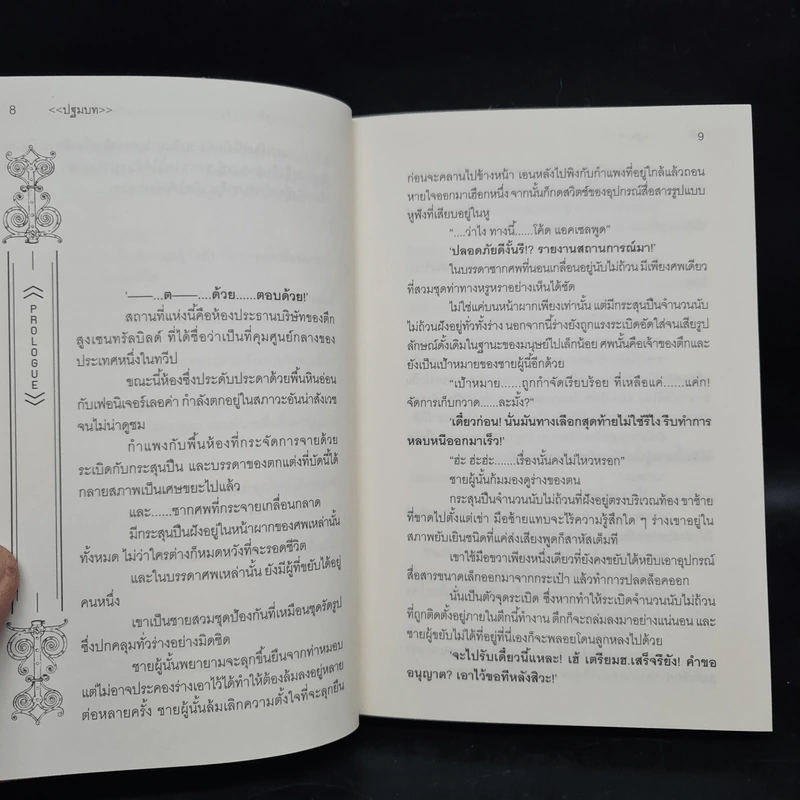 8 <<ปฐมบท>>
PROLOGUE
'——...ต——....ด้วย......ตอบด้วย!'
สถานที่แห่งนี้คือห้องประธานบริษัทของตึก
สูงเซนทรัลบิลด์ ที่ได้ชื่อว่าเป็นที่คุมศูนย์กลางของ
ประเทศหนึ่งในทวีป
ขณะนี้ห้องซึ่งประดับประดาด้วยพื้นหินอ่อน
กับเฟอนิเจอร์เลอค่า กำลังตกอยู่ในสภาวะอันน่าสังเวช
จนไม่น่าดูชม
กำแพงกับพื้นห้องที่กระจัดการจายด้วย
ระเบิดกับกระสุนปืน และบรรดาของตกแต่งที่บัดนี้ได้
กลายสภาพเป็นเศษขยะไปแล้ว
และ......ซากศพที่กระจายเกลื่อนกลาด
มีกระสุนปืนฝังอยู่ในหน้าผากของศพเหล่านั้น
ทั้งหมด ไม่ว่าใครต่างก็หมดหวังที่จะรอดชีวิต
และในบรรดาศพเหล่านั้น ยังมีผู้ที่ขยับได้อยู่
คนหนึ่ง
เขาเป็นชายสวมชุดป้องกันที่เหมือนชุดรัดรูป
ซึ่งปกคลุมทั่วร่างอย่างมิดชิด
ชายผู้นั้นพยายามจะลุกขึ้นยืนจากท่าหมอบ
แต่ไม่อาจประคองร่างเอาไว้ได้ทำให้ต้องล้มลงอยู่หลาย
ต่อหลายครั้ง ชายผู้นั้นล้มเลิกความตั้งใจที่จะลุกยืน
9
ก่อนจะคลานไปข้างหน้า เอนหลังไปพิงกับกำแพงที่อยู่ใกล้แล้วถอน
หายใจออกมาเฮือกหนึ่ง จากนั้นก็กดสวิตช์ของอุปกรณ์สื่อสารรูปแบบ
หูฟังที่เสียบอยู่ในหู
"....ว่าไง ทางนี้......โค้ด แอคเซลพูด"
'ปลอดภัยดีงั้นรึ!? รายงานสถานการณ์มา!'
ในบรรดาซากศพที่นอนเกลื่อนอยู่นับไม่ถ้วน มีเพียงศพเดียว
ที่สวมชุดท่าทางหรูหราอย่างเห็นได้ชัด
ไม่ใช่แค่บนหน้าผากเพียงเท่านั้น แต่มีกระสุนปืนจำนวนนับ
ไม่ถ้วนฝังอยู่ทั่วทั้งร่าง นอกจากนี้ร่างยังถูกแรงระเบิดอัดใส่จนเสียรูป
ลักษณ์ดั้งเดิมในฐานะของมนุษย์ไปเล็กน้อย ศพนั้นคือเจ้าของตึกและ
ยังเป็นเป้าหมายของชายผู้นี้อีกด้วย
"เป้าหมาย......ถูกกำจัดเรียบร้อย ที่เหลือแค่......แค่ก!
จัดการเก็บกวาด......ละมั้ง?"
'เดี๋ยวก่อน! นั่นมันทางเลือกสุดท้ายไม่ใช่รึไง รีบทำการ
หลบหนีออกมาเร็ว!'
"ฮ่ะ ฮ่ะฮ่ะ......เรื่องนั้นคงไม่ไหวหรอก"
ชายผู้นั้นก้มมองดูร่างของตน
กระสุนปืนจำนวนนับไม่ถ้วนที่ฝังอยู่ตรงบริเวณท้อง ขาซ้าย
ที่ขาดไปตั้งแต่เข่า มือซ้ายแทบจะไร้ความรู้สึกใด ๆ ร่างเขาอยู่ใน
สภาพยับเยินชนิดที่แค่ส่งเสียงพูดก็สาหัสเต็มที
เขาใช้มือขวาเพียงหนึ่งเดียวที่ยังคงขยับได้หยิบเอาอุปกรณ์
สื่อสารขนาดเล็กออกมาจากกระเป๋า แล้วทำการปลดล็อคออก
นั่นเป็นตัวจุดระเบิด ซึ่งหากทำให้ระเบิดจำนวนนับไม่ถ้วน
ที่ถูกติดตั้งอยู่ภายในตึกนี้ทำงาน ตึกก็จะถล่มลงมาอย่างแน่นอน และ
ชายผู้ขยับไม่ได้ที่อยู่ที่นี่เองก็จะพลอยโดนลูกหลงไปด้วย
'จะไปรับเดี๋ยวนี้แหละ! เฮ้ เตรียมฮ.เสร็จรึยัง! คำขอ
อนุญาต? เอาไว้ขอทีหลังสิวะ!'